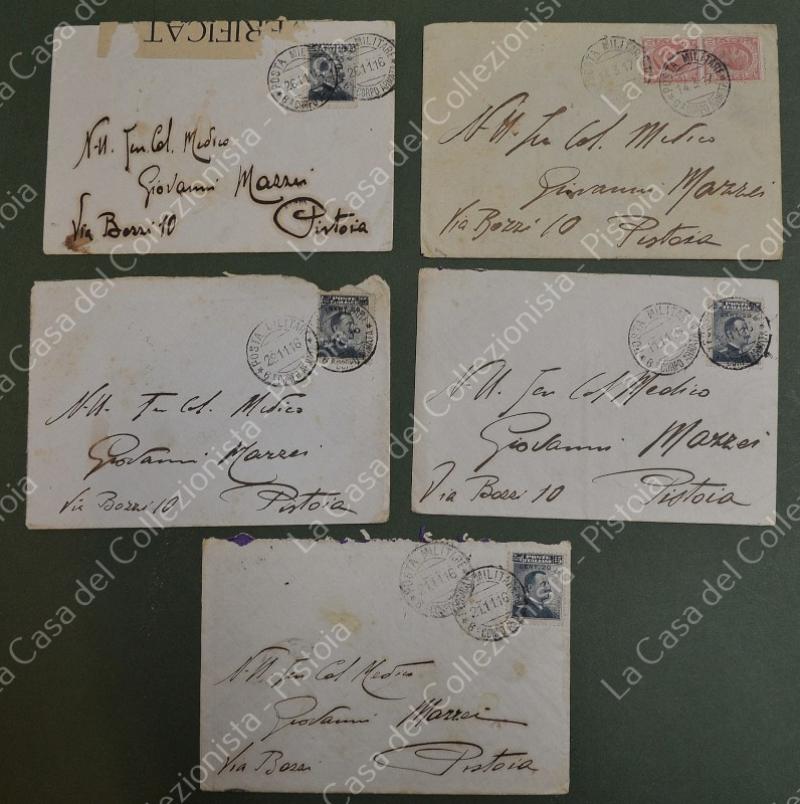 VERIFICAT
POSTA MILITARE
26.11.16
6° CORPO
N.H. Ten. Col. Medico
Giovanni Mazzei
Via Bozzi 10 Pistoia
POSTA MILITARE
N.H. Ten Col. Medico
Giovanni Mazzei
Via Bozzi 10 Pistoia
POSTA MILITARE
26.11.16
N.H. Ten Col. Medico
Giovanni Mazzei
Via Bozzi 10 Pistoia
POSTA MILITARE
N.H. Ten Col Medico
Giovanni Mazzei
Via Bozzi 10 Pistoia
POSTA MILITARE
21.11.16
N.H. Ten Col Medico
Giovanni Mazzei
Via Bozzi Pistoia
La Casa del Collezionista - Pistoia